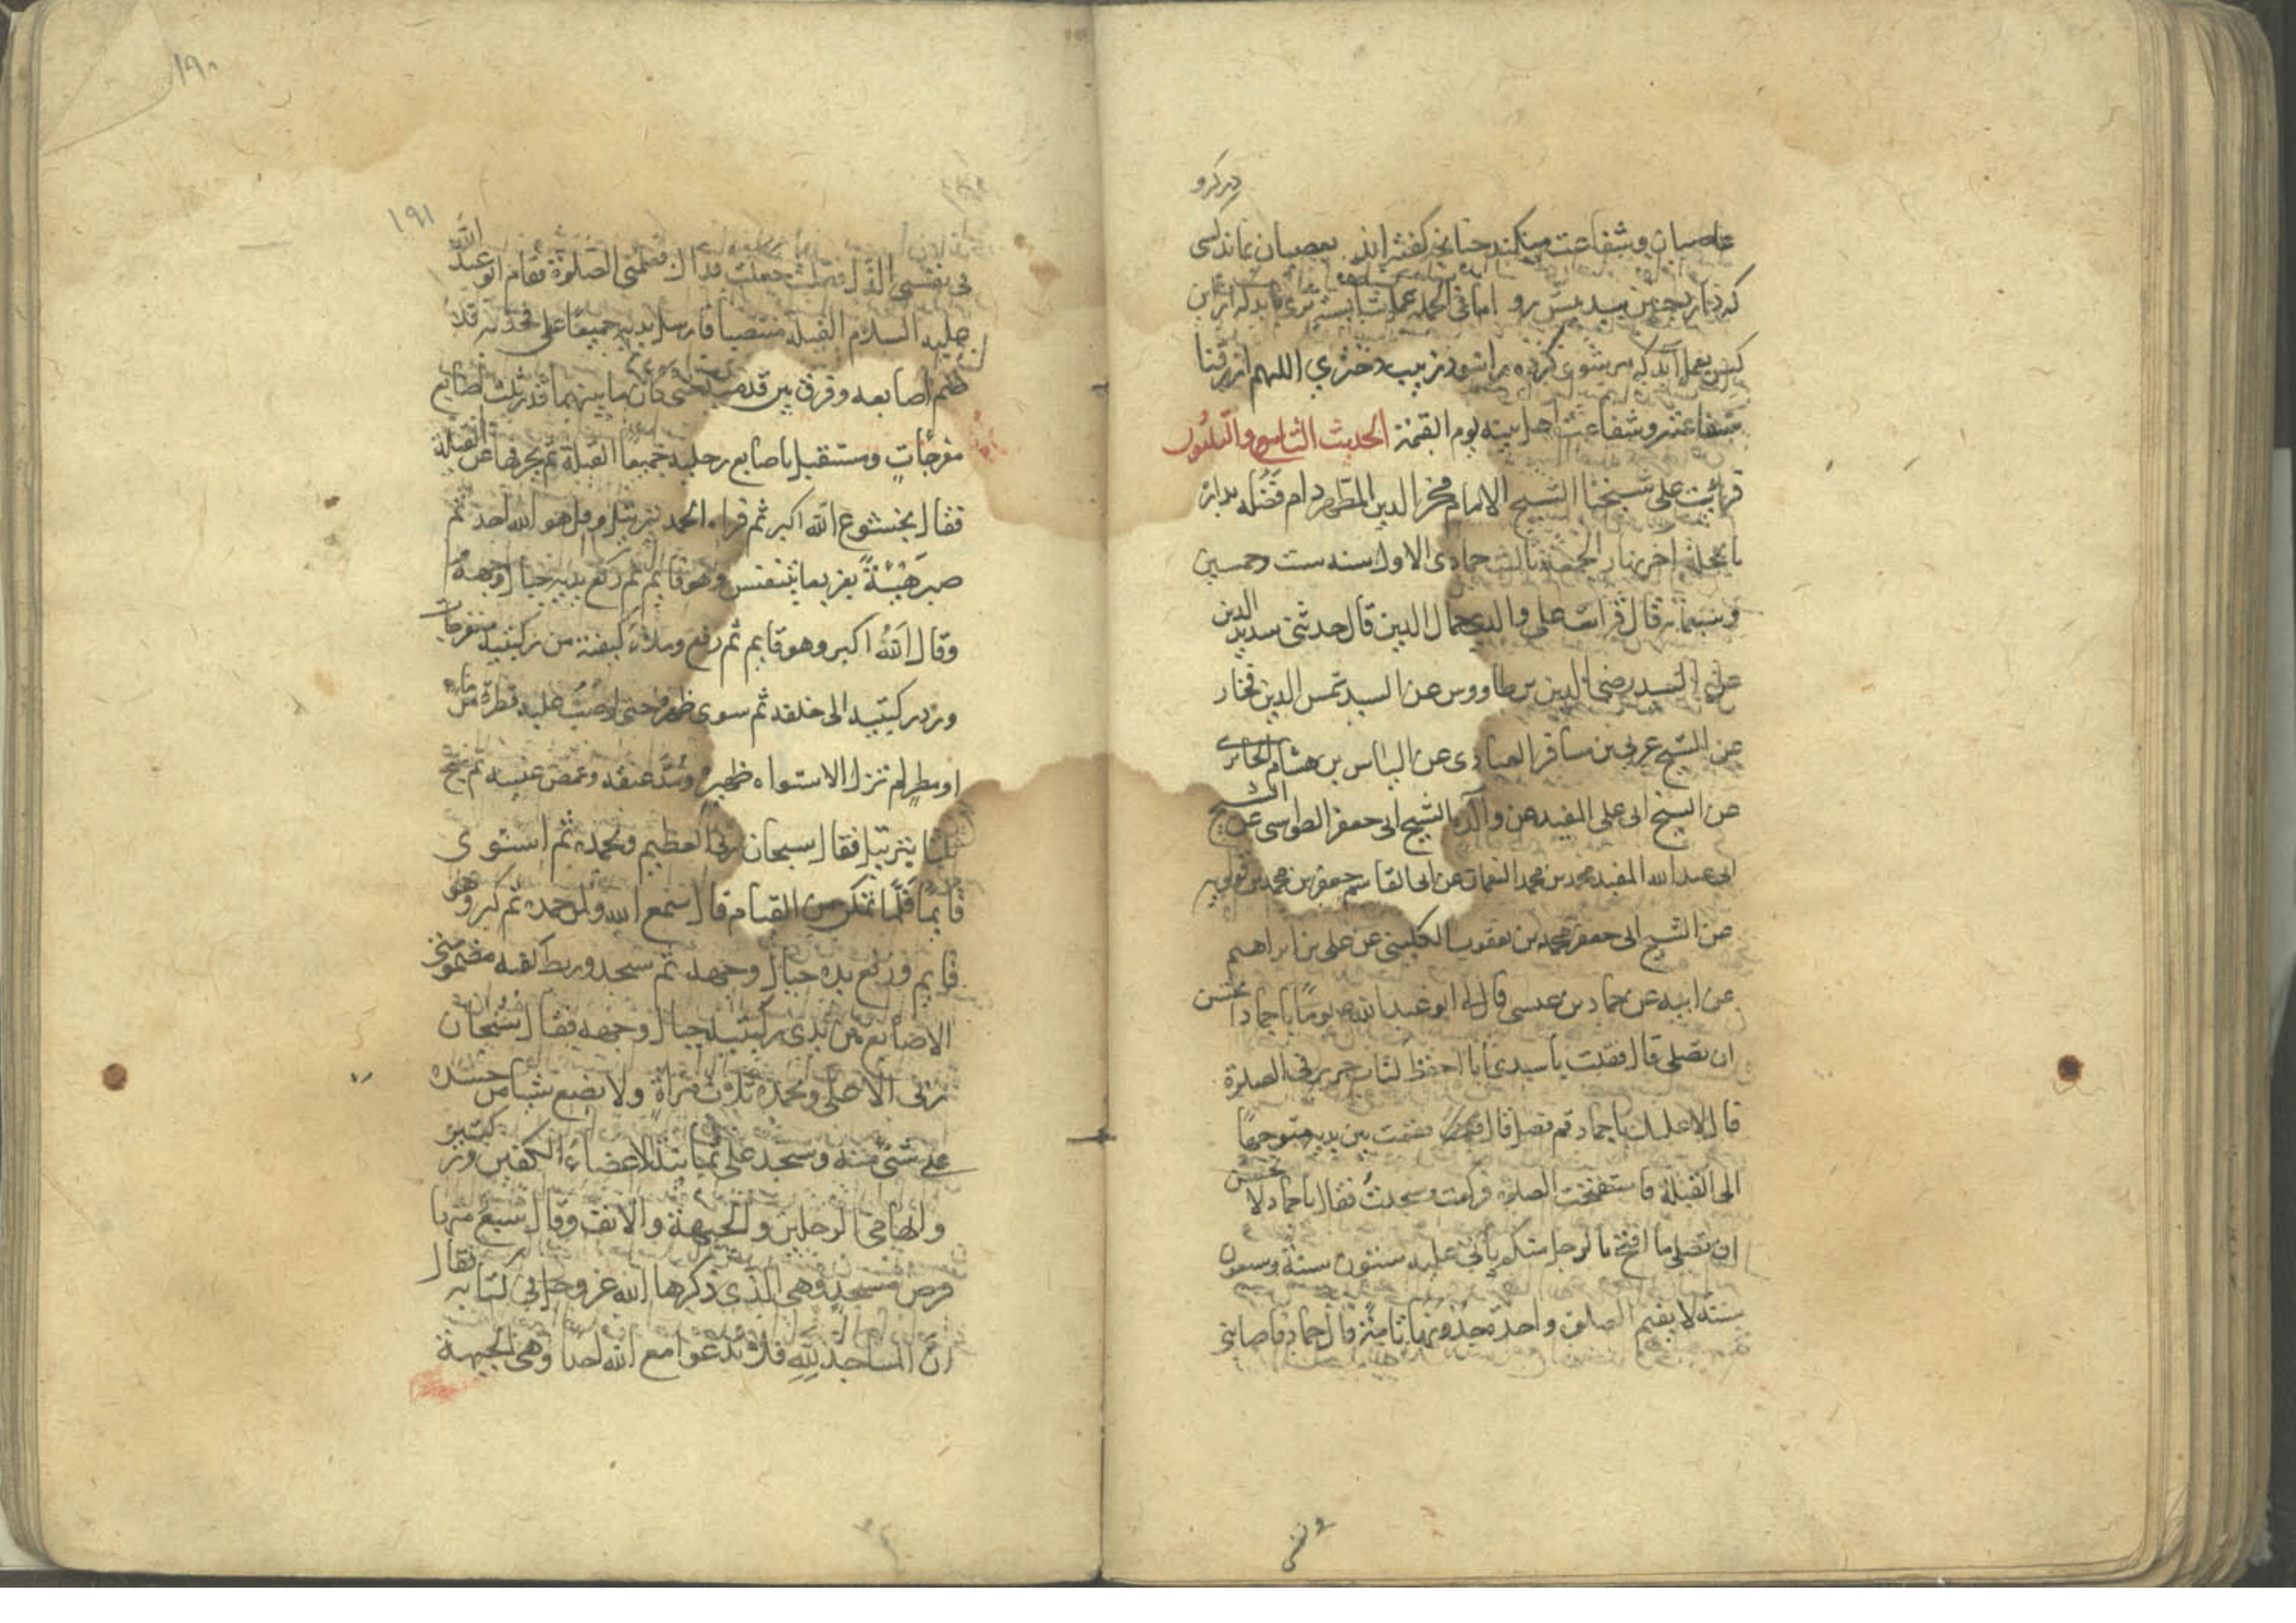 در کرو
عاصیان و شفاعت میکند چنانچه گفته اند بعصیان نماند کسی
که دارد چنین سید پیش رو اما فی الجمله عمل شایسته
شفاعته و شفاعت اهل بیته یوم القیمة الحدیث التاسع والثلثون
قرائت علی شیخنا الشیخ الامام فخر الدین المطهر دام فضله بداره
بالحلة اخر نهار الجمعة ثالث جمادی الاول سنه ست وخمسین
وسبعمائة قال قرات علی والدی جمال الدین قال حدثنی سدید الدین
عن السید رضی الدین بن طاووس عن السید شمس الدین فخار
عن الشیخ عربی بن مسافر العبادی عن الیاس بن هشام الحائری
عن الشیخ ابی علی المفید عن والده الشیخ ابی جعفر الطوسی عن الشیخ
ابی عبد الله المفید محمد بن محمد النعمان عن ابی القاسم جعفر بن محمد بن قولویه
عن الشیخ ابی جعفر محمد بن یعقوب الکلینی عن علی بن ابراهیم
عن ابیه عن حماد بن عیسی قال لی ابو عبد الله یوما یا حماد تحسن
ان تصلی قال فقلت یا سیدی انا احفظ کتاب حریز فی الصلوة
قال لا علیک یا حماد قم فصل قال فقمت بین یدیه متوجها
الی القبلة فاستفتحت الصلوة فرکعت وسجدت فقال یا حماد لا تحسن
ان تصلی ما اقبح بالرجل منکم یأتی علیه ستون سنة وسبعون
سنة لا یقیم الصلوة واحدة بحدودها تامة قال حماد فاصابنی
فی نفسی
۱۹۰
۱۹۱
فی نفسی الذل فقلت جعلت فداک فعلمنی الصلوة فقام ابو عبد الله
علیه السلام القبلة منتصبا فارسل یدیه جمیعا علی فخذیه قد
ضم اصابعه وقرن بین قدمیه حتی کان ما بینهما قدر ثلث اصابع
مفرجات وستقبل باصابع رجلیه جمیعا القبلة ثم یحرفها عن القبلة
فقال بخشوع الله اکبر ثم قراء الحمد بترتیل وقل هو الله احد ثم
صبر هنیئة بقدر ما یتنفس وهو قایم ثم رفع یدیه حیال وجهه
وقال الله اکبر وهو قایم ثم رکع وملاء کفیه من رکبتیه متفرجات
ورد رکبتیه الی خلفه ثم سوی ظهره حتی لو صب علیه قطرة من ماء
او مطر لم تزل الاستواء ظهره ومد عنقه وغمض عینیه ثم سبح
ثلثا بترتیل فقال سبحان ربی العظیم وبحمده ثم استوی
قایما فلما تمکن من القیام قال سمع الله ولمن حمده ثم کبر وهو
قایم ورفع یده حیال وجهه ثم سجد وبسط کفیه مضمومتی
الاصابع بین یدی رکبتیه حیال وجهه فقال سبحان
ربی الاعلی وبحمده ثلاث مراة ولا یضع شیئا من جسده
علی شئی منه وسجد علی ثمانیة الاعضاء الکفین ورکبتین
وابهامی الرجلین والجبهة والانف وقال سبع منها
فرض مسجد وهی الذی ذکرها الله عز وجل فی کتابه فقال
ان المساجد لله فلا تدعوا مع الله احدا وهی الجبهة